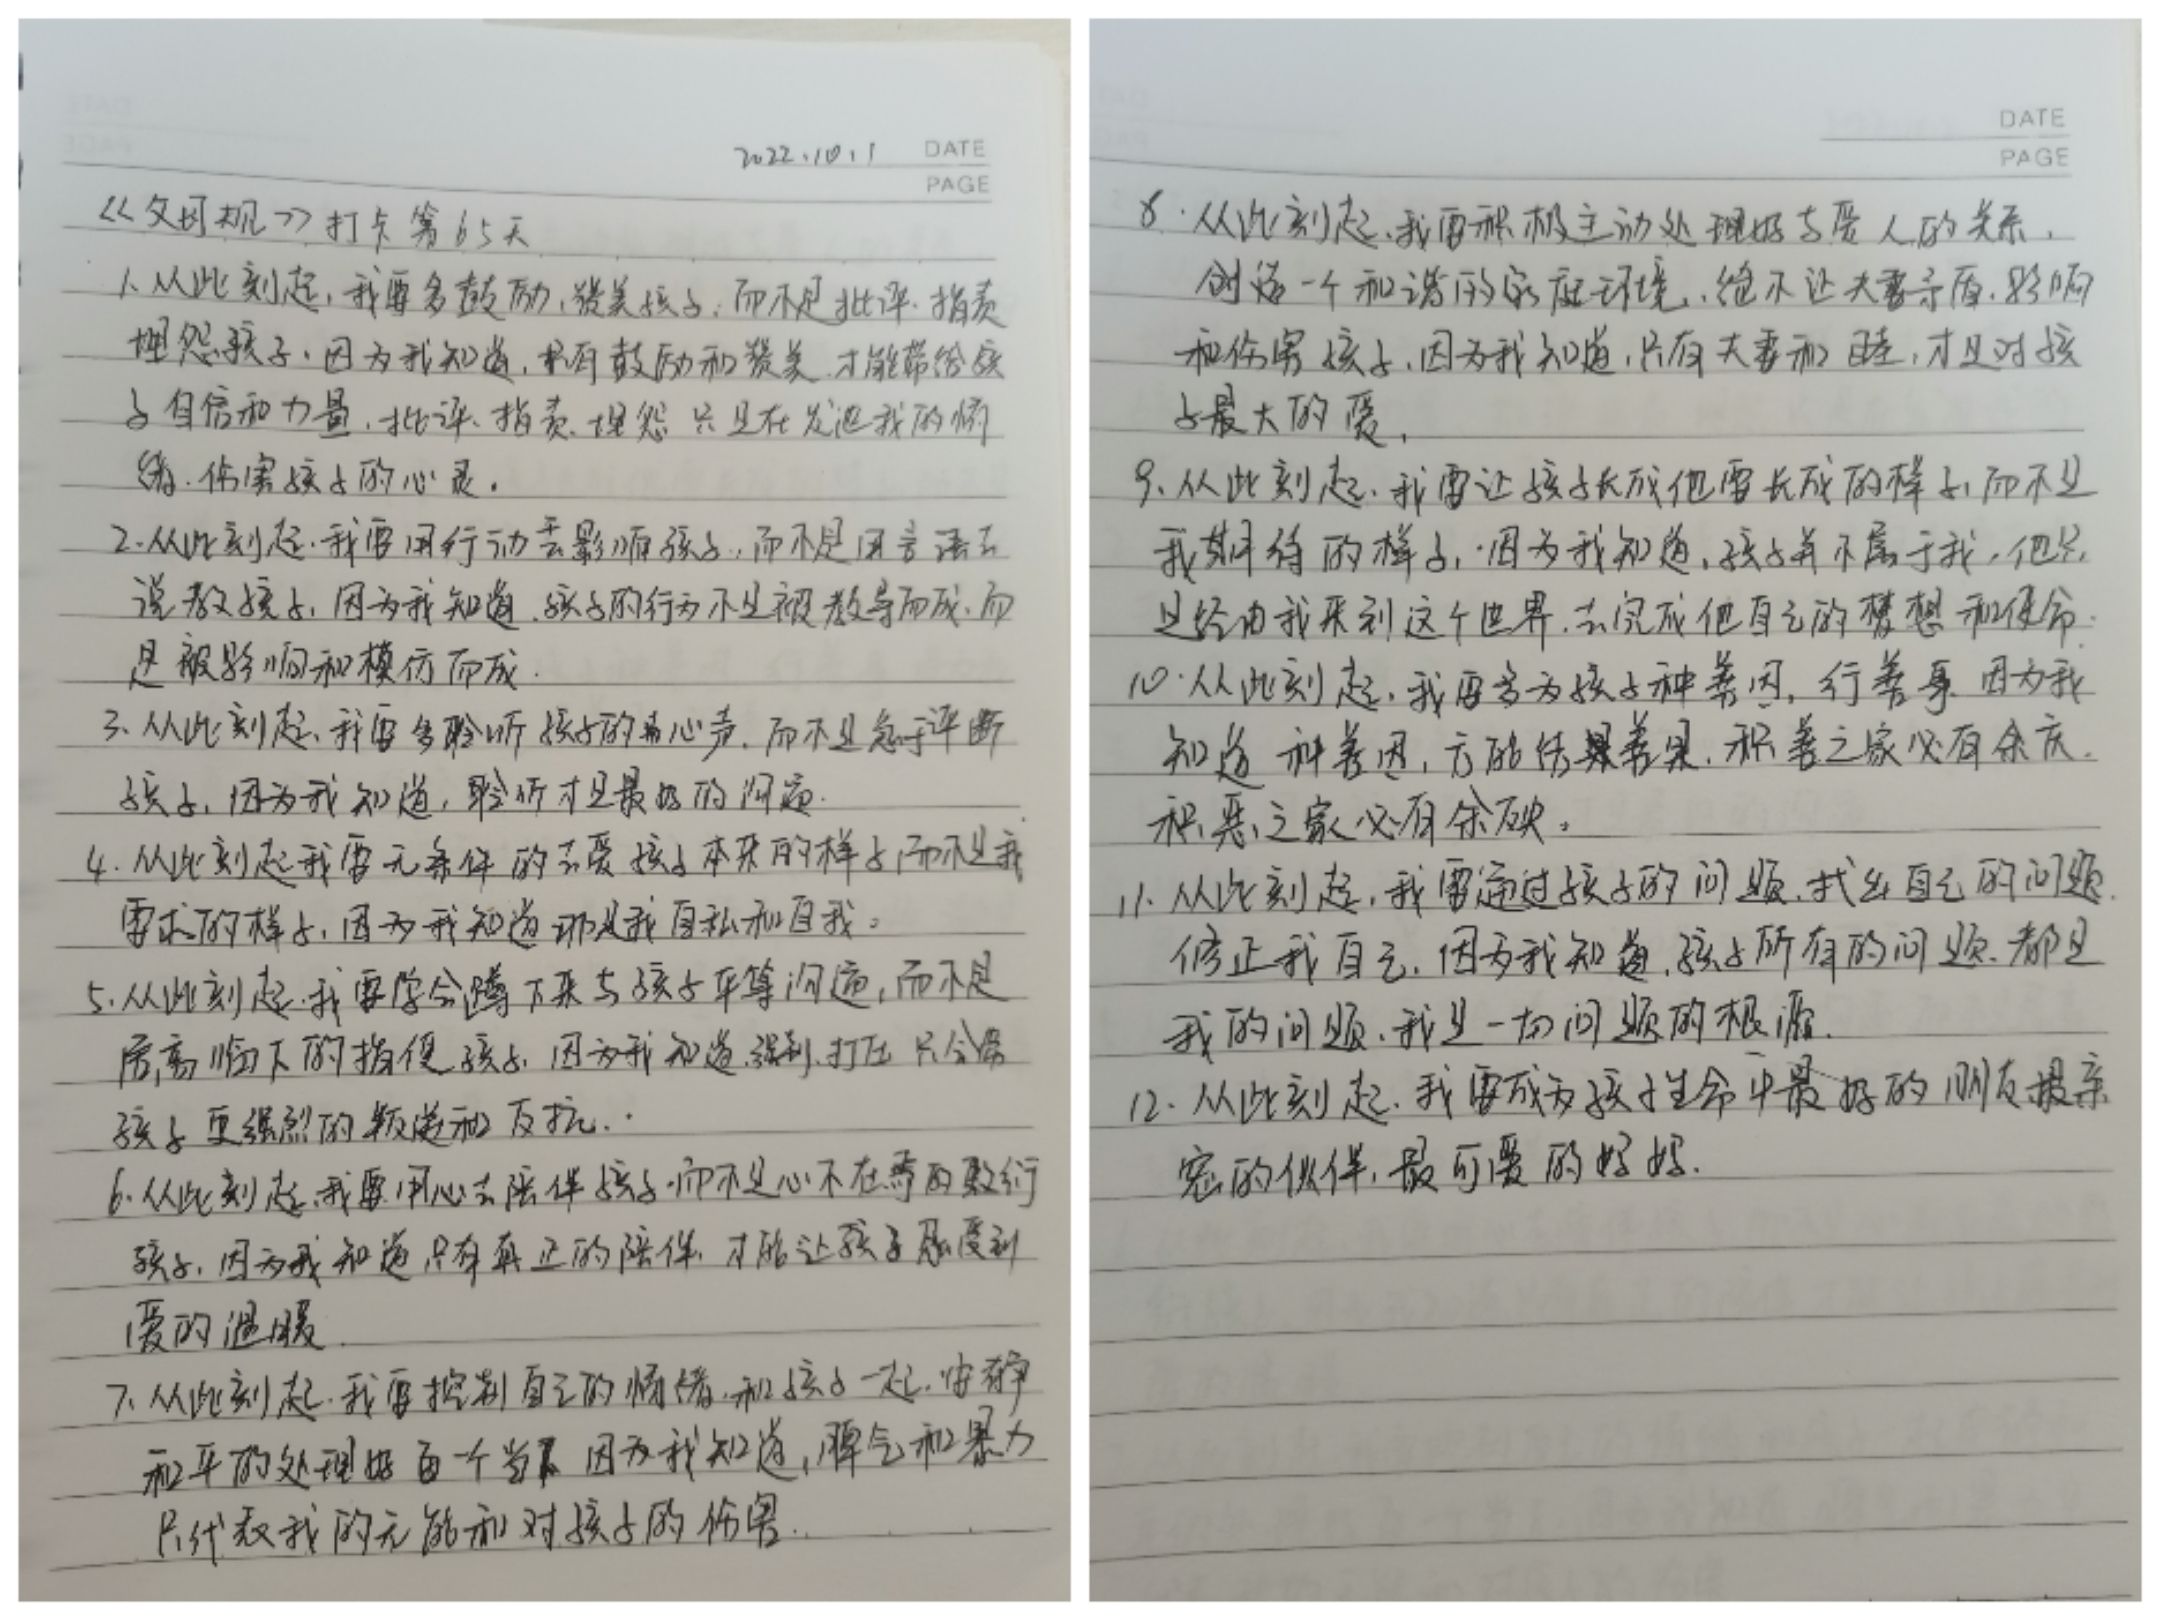 2022.10.1 DATE
PAGE
《父母规》打卡第65天
1. 从此刻起,我要多鼓励,赞美孩子,而不是批评、指责
埋怨孩子,因为我知道,只有鼓励和赞美,才能带给孩
子自信和力量,批评、指责、埋怨只是在发泄我的情
绪、伤害孩子的心灵。
2. 从此刻起,我要用行动去影响孩子,而不是用言语去
说教孩子,因为我知道,孩子的行为不是被教导而成,而
是被影响和模仿而成.
3. 从此刻起,我要多聆听孩子的心声,而不是急于评断
孩子,因为我知道,聆听才是最好的沟通.
4. 从此刻起我要无条件的去爱孩子本来的样子而不是我
要求的样子,因为我知道那是我自私和自我。
5. 从此刻起,我要学会蹲下来与孩子平等沟通,而不是
居高临下的指使孩子,因为我知道强制、打压只会带
孩子更强烈的叛逆和反抗.
6. 从此刻起,我要用心去陪伴孩子,而不是心不在焉的敷衍
孩子,因为我知道只有真正的陪伴,才能让孩子感受到
爱的温暖.
7. 从此刻起,我要控制自己的情绪,和孩子一起,安静
和平的处理好每一个当下因为我知道,脾气和暴力
只代表我的无能和对孩子的伤害.
DATE
PAGE
8. 从此刻起,我要积极主动处理好与爱人的关系,
创造一个和谐的家庭环境,绝不让夫妻矛盾,影响
和伤害孩子,因为我知道,只有夫妻和睦,才是对孩
子最大的爱,
9. 从此刻起,我要让孩子长成他要长成的样子,而不是
我期待的样子,因为我知道,孩子并不属于我,他只
是经由我来到这个世界,去完成他自己的梦想和使命.
10. 从此刻起,我要多为孩子种善因,行善事因为我
知道种善因,方能结善果,积善之家必有余庆.
积恶之家必有余殃。
11. 从此刻起,我要通过孩子的问题,找出自己的问题,
修正我自己,因为我知道,孩子所有的问题,都是
我的问题,我是一切问题的根源.
12. 从此刻起,我要成为孩子生命中最好的朋友最亲
密的伙伴,最可爱的妈妈.